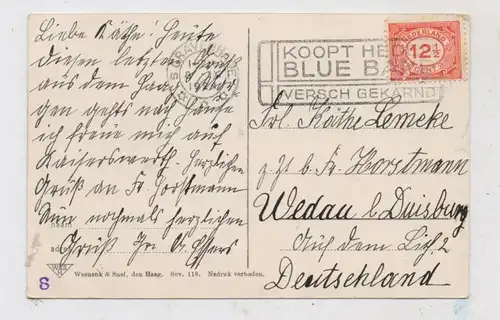 Liebe Käthe! Heute
diesen letzten Gruß
aus dem Haag. Mor-
gen gehts nach Hause
ich freue mich auf
Kaiserswerth. Herzlichen
Gruß an Fr. Horstmann
Nun nochmals herzlichen
Gruß Ihr
naam
adres
Waenenk & Snel, den Haag. Nadruk verboden.
S
'S GRAVENHAGE
KOOPT HEDEN
BLUE BAND
VERSCH GEKARND
NEDERLAND
12½
CENT
Frl. Käthe Lemcke
z. Zt b. Fr. Horstmann
Wedau b. Duisburg
Auf dem Lich. 2
Deutschland